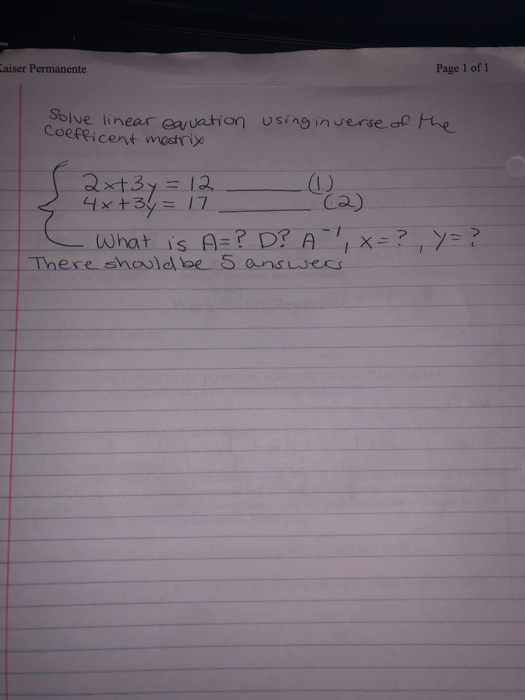 Caiser Permanente Page 1 of 1
Solve linear equation using inverse of the
Coefficent matrix
2x+3y = 12 ____ (1)
4x+3y = 17 ____ (2)
What is A=? D? A⁻¹, x=?, y=?
There should be 5 answers